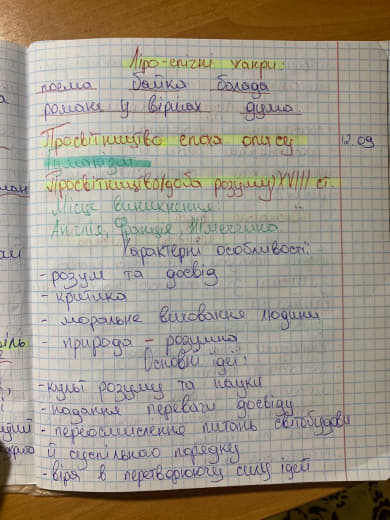 Ліро-епічні жанри:
поема байка балада
роман у віршах дума.
Просвітництво епоха опису
12.09
Просвітництво (доба розуму) XVIII ст.
Місце виникнення:
Англія, Франція, Німеччина
Характерні особливості:
-розум та досвід
-критика
- моральне виховання людини
- природа - розумна
Основні ідеї:
-культ розуму та науки
-надання переваги досвіду
-переосмислення питань світобудови
й суспільного порядку
-віра в перетворюючу силу ідей